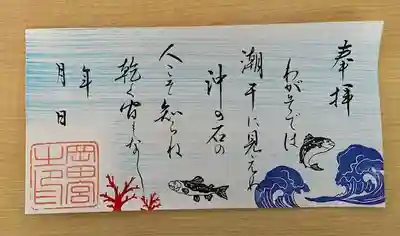 奉拝
わがそでは
潮干に見えぬ
沖の石の
人こそ知らね
乾く間もなし
年
月 日